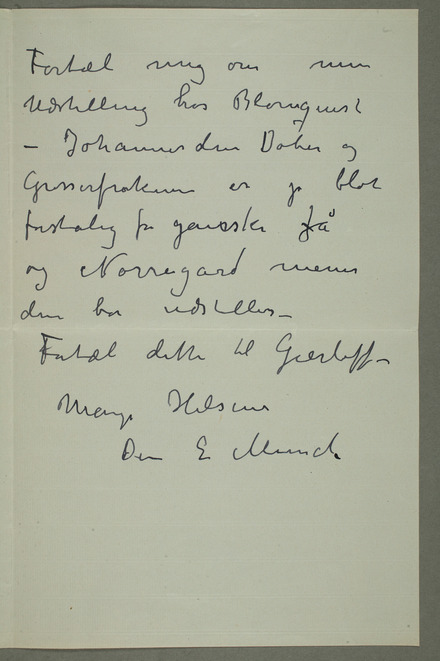 Fortæl mig om min
Udstilling hos Blomquist
– Johannes den Døber og
Grosserfrøknen er jo blot
forståelig for ganske få
og Nørregård mener
den bør udstilles –
Fortæl dette til Gierløff –
Mange Hilsener
Din E Munch